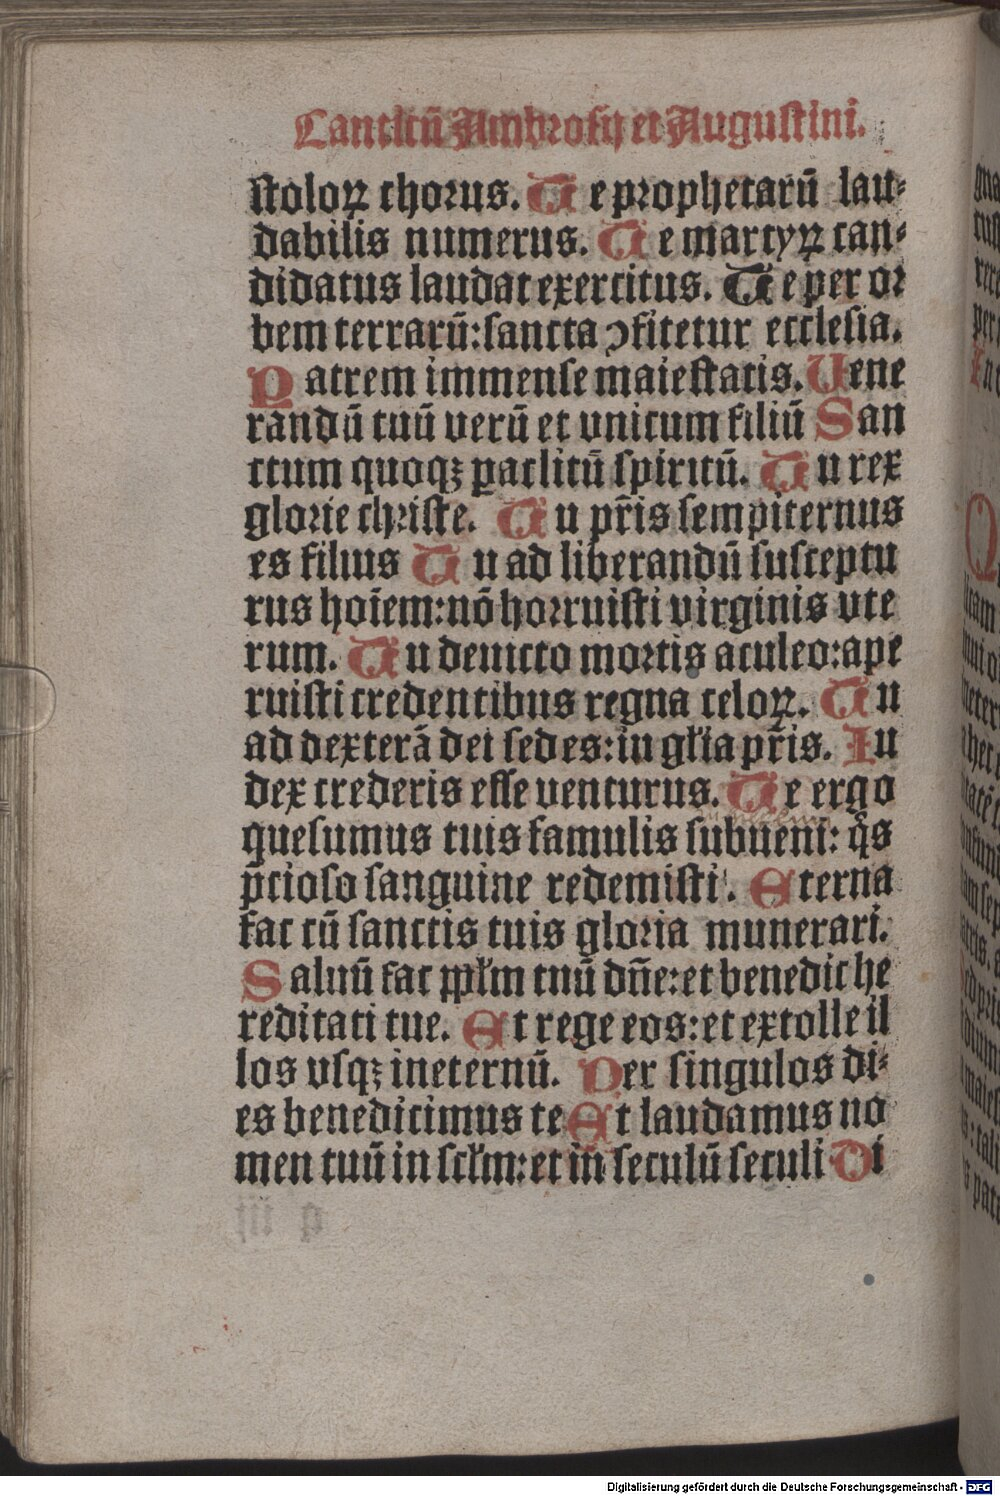 Canticū Ambrosij et Augustini.
stoloꝝ chorus. Te prophetarū lau⸗
dabilis numerus. Te martyꝝ can⸗
didatus laudat exercitus. Te per or
bem terrarū: sancta ꝯfitetur ecclesia.
Patrem immense maiestatis. Uene
randū tuū verū et vnicum filiū San
ctum quoqꝫ ꝑaclitū spiritū. Tu rex
glorie christe. Tu pr̄is sempiternus
es filius Tu ad liberandū susceptu
rus hoīem: nō horruisti virginis vte
rum. Tu deuicto mortis aculeo: ape
ruisti credentibus regna celoꝝ. Tu
ad dexterā dei sedes: in gl̄ia pr̄is. Iu
dex crederis esse venturus. Te ergo
quesumus tuis famulis subueni: q̄s
p̄cioso sanguine redemisti. Eterna
fac cū sanctis tuis gloria munerari.
Saluū fac ppl̄m tuū dn̄e: et benedic he
reditati tue. Et rege eos: et extolle il
los vsqꝫ ineternū. Per singulos di⸗
es benedicimus te Et laudamus no
men tuū in scl̄m: et in seculū seculi Di
Digitalisierung gefördert durch die Deutsche Forschungsgemeinschaft - DFG